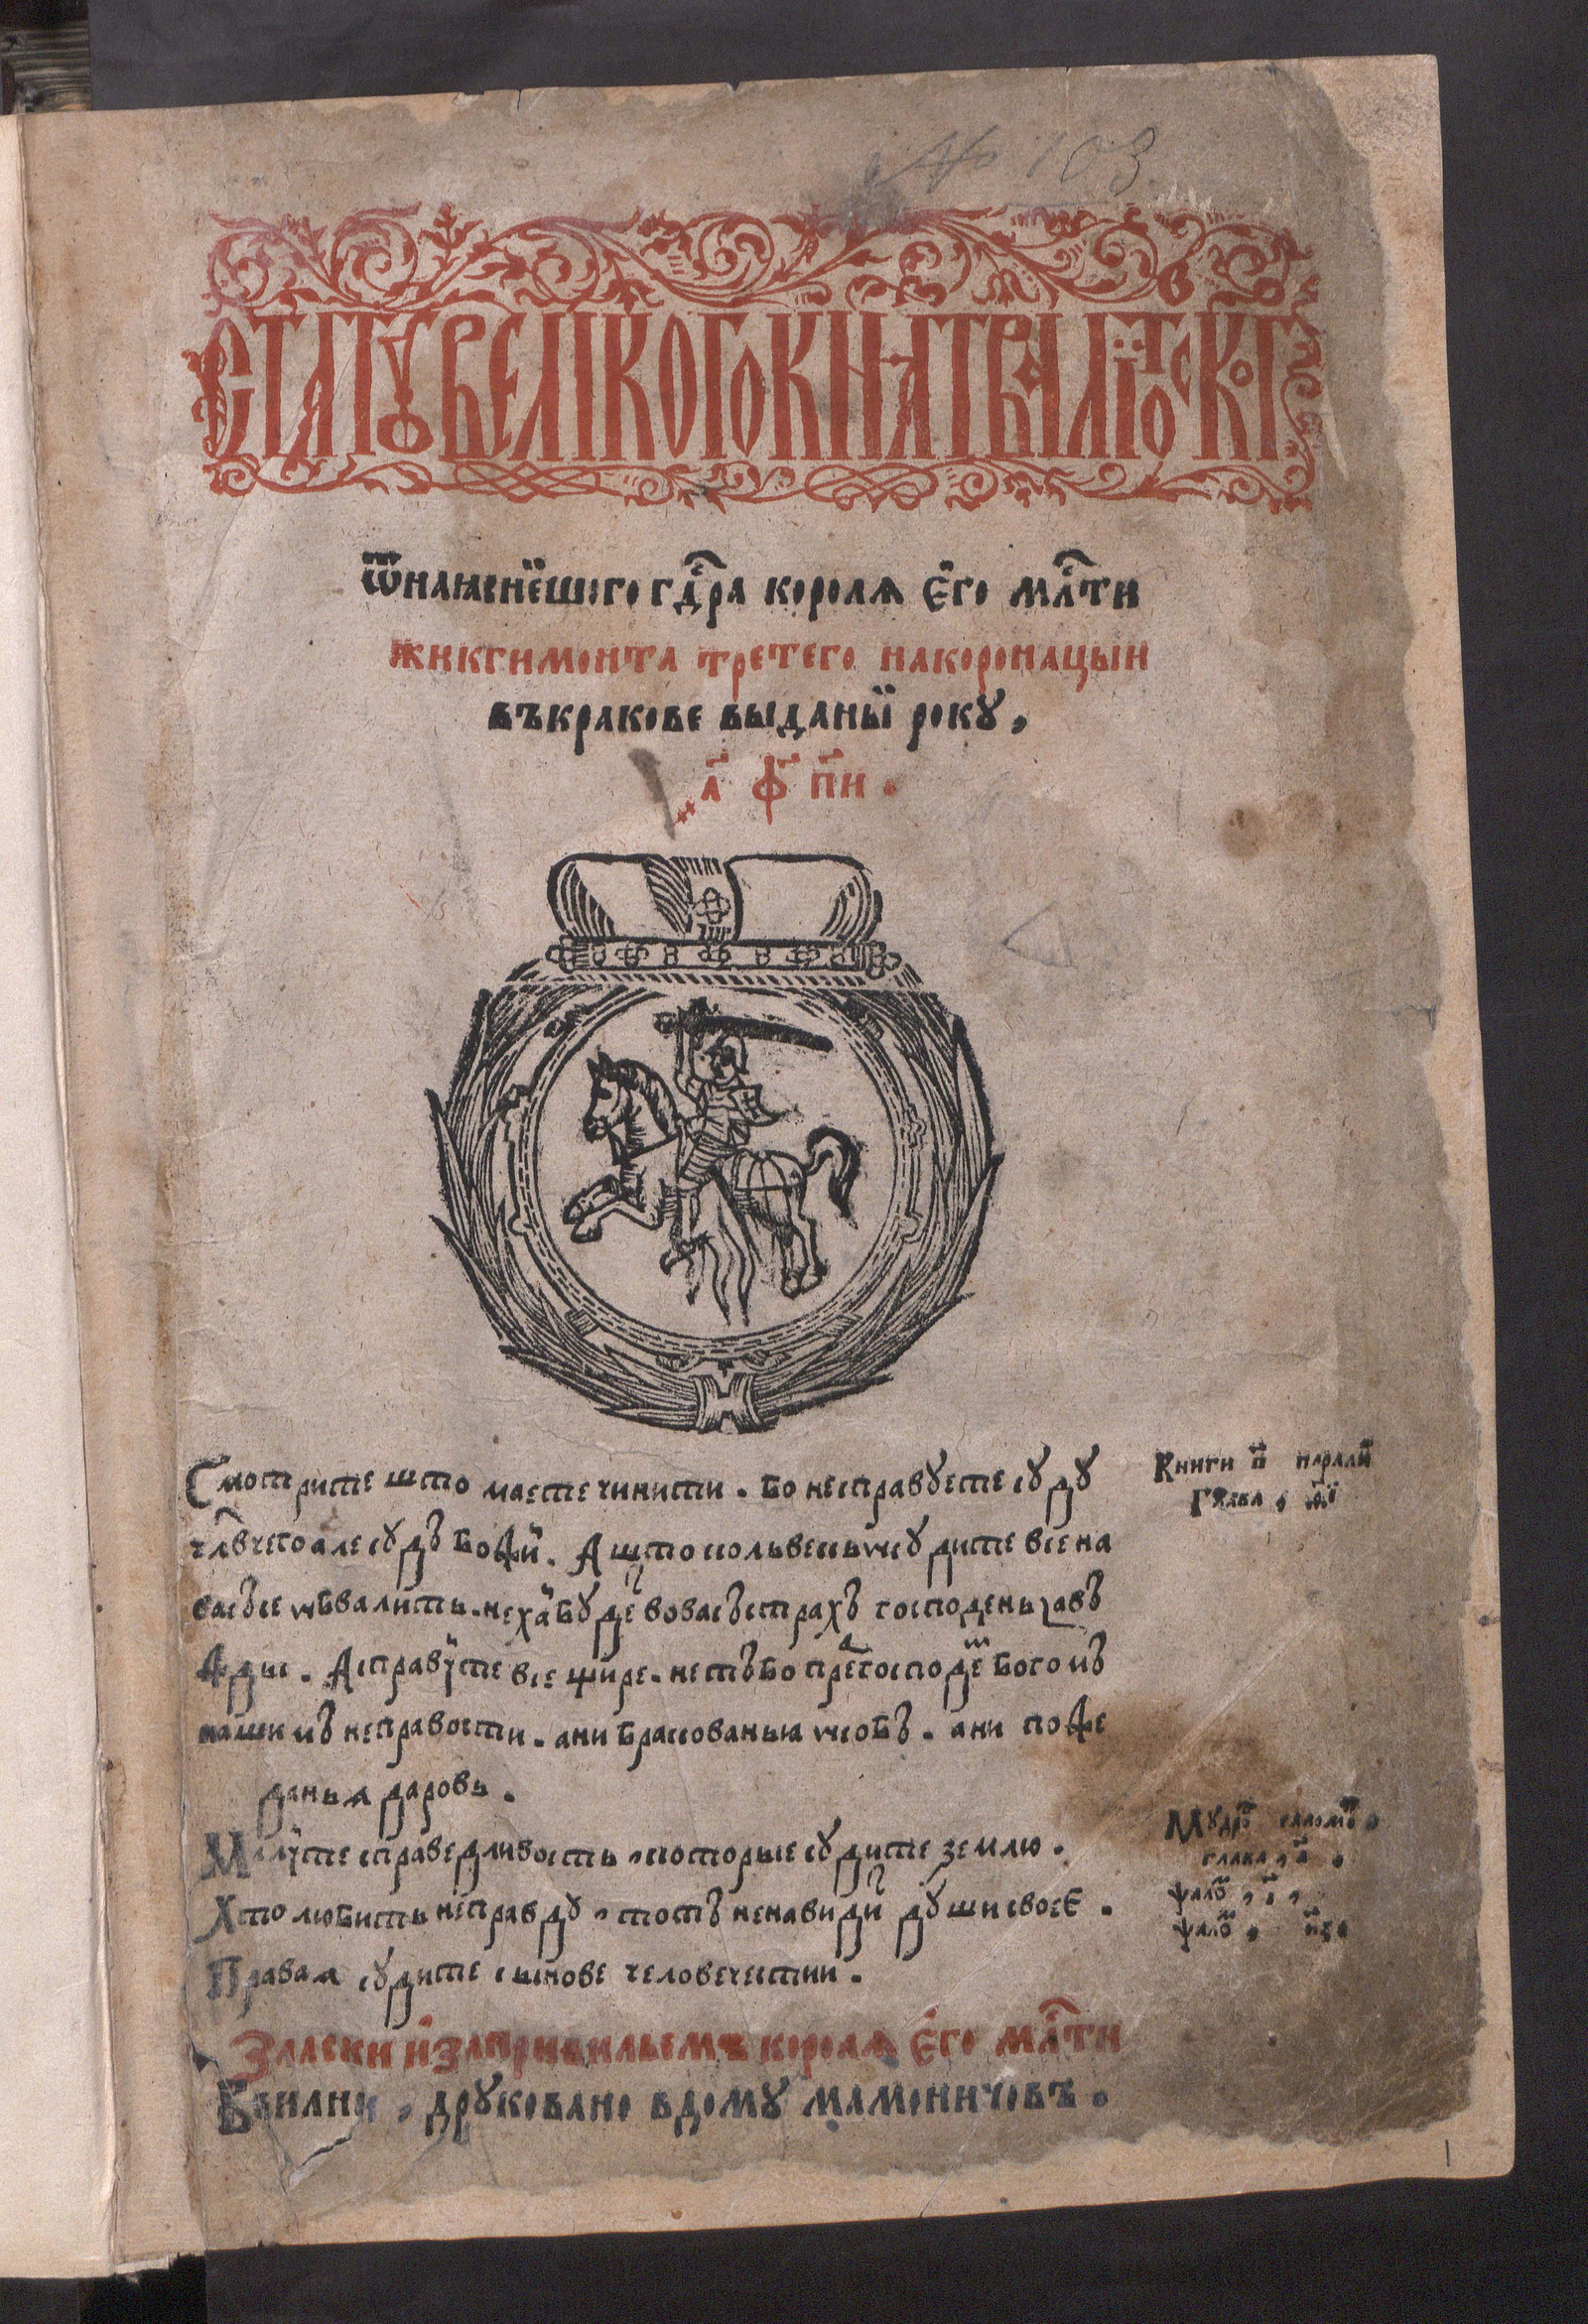 № 103
СТАТꙋ ВЕЛІКОГО КНꙖТВА ЛІТОСКОГ
Ѿ наꙗснѣишого гдⷭ҇ра королѧ его млⷭ҇ти
жикгимонта третего на коронацыи
въ кракове выданыи року,
҂а҃ ф҃ п҃и .
Смотрите што маете чинити . бо не справуете суду
члв҃чего але судъ божии . А што кольвекъ ѡсудите все на
васъ се ѡбвалить . нехаи буде во васъ страхъ господень завъ
жды . А справуите все щире . нетъ бо пред господем богомъ
нашимъ неправости . ани бракованьꙗ ѡсобъ . ани поже
даньѧ даровъ .
Милуите справедливость , которые судите землю .
Хто любить неправду , тотъ ненавидит души своее .
Праваѧ судите сынове человечестии .
Книги в҃ парали
Глава , ѳ҃і
Мудро саломо ,
глава , а҃ ,
ѱало , і҃ ,
ѱало , н҃з ,
З ласки и за привильемъ королѧ его млⷭ҇ти
В вилни , друковано в дому мамоничовъ .